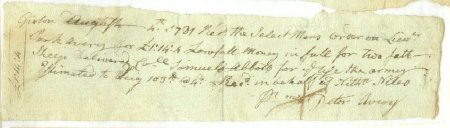 Groton August 4th 1781 Rec'd the Select Mens Order on Lieut
Park Avery for £1:14:4 Lawfull Money in full for two fatt
Sheep Delivered Coll Samuel Abbott for use the army
Estimated to Weig 103 lb @ 4d Rec'd in behalf of Nathn Niles
Pr me Peter Avery
£1:14:4